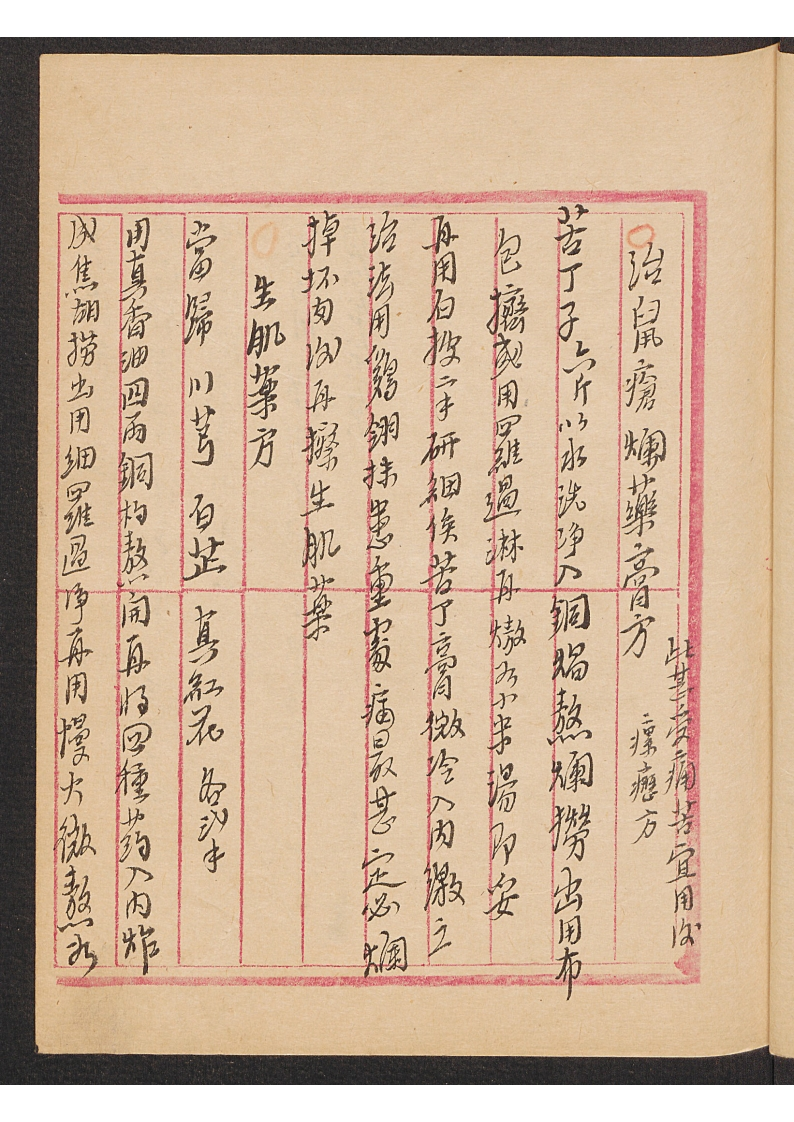 治鼠瘡爛藥膏方
此甚受痛苦宜用後
瘰癧方
苦丁子六斤以水洗淨入銅鍋熬爛撈出用布
包擠或用四羅過淋再熬如小米湯即妥
再用石 二 研細候苦丁膏微冷入內 之
治法用鷄翎抹患重處痛最甚定必爛
掉坏肉後再擦生肌藥
生肌藥方
當歸 川芎 白芷 真紅花 各弍
用真香油四兩銅杓熬開再將四種药入內炸
成焦胡撈出用細羅過净再用慢火微熬